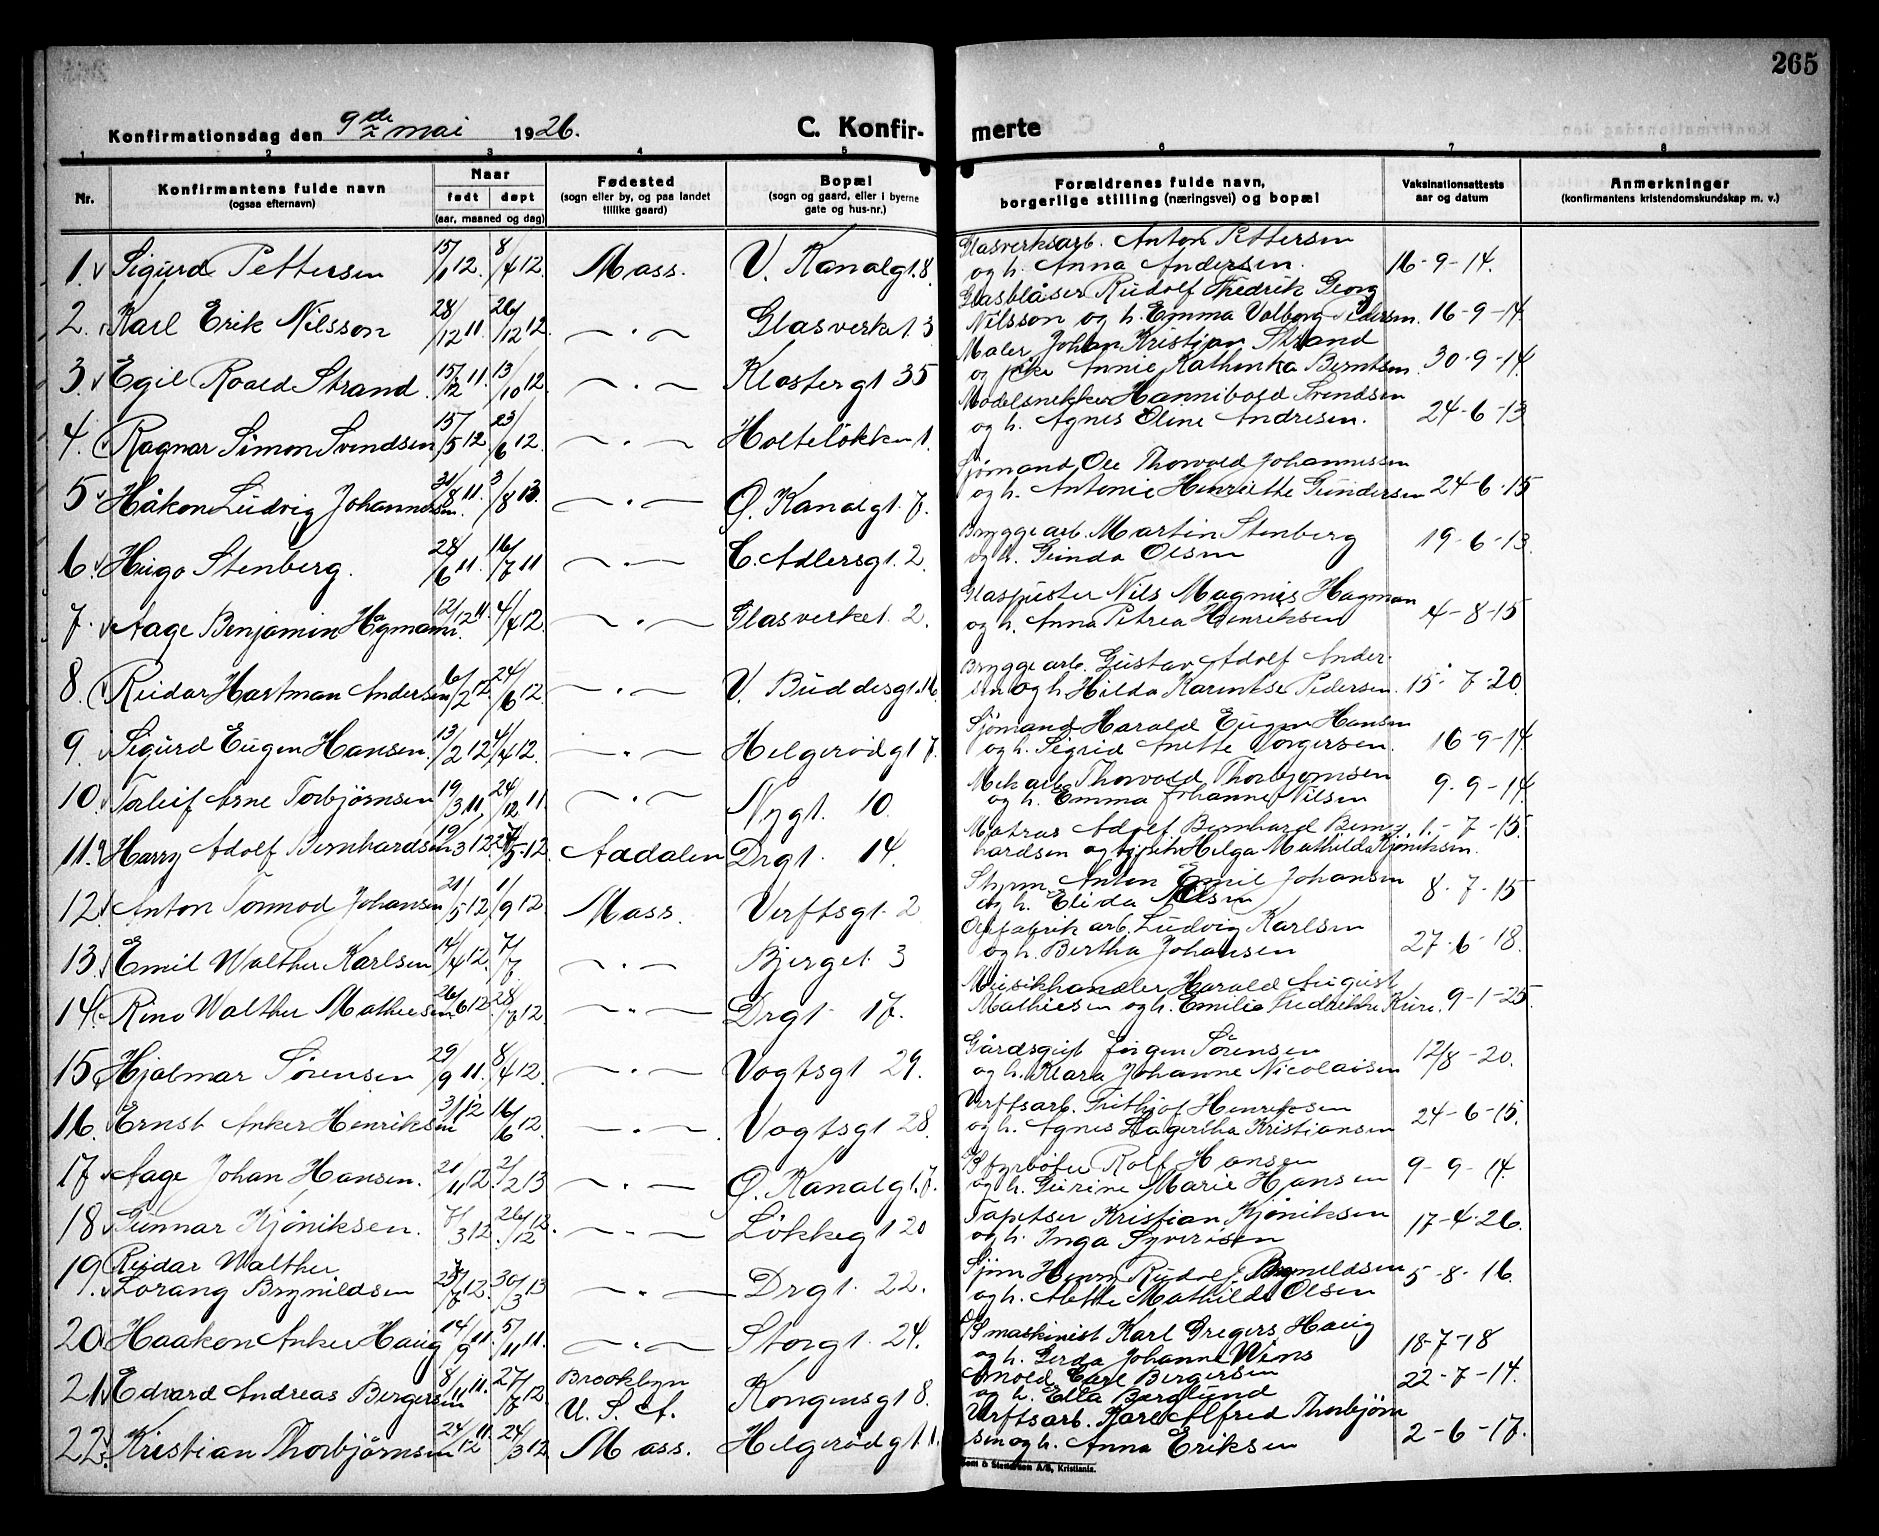 265
Konfirmationsdag den 9de mai 1926.
C. Konfirmerte
1 2 3 4 5 6 7 8
Nr.
Konfirmantens fulde navn
(ogsaa efternavn)
Naar
født døpt
(aar, maaned og dag)
Fødested
(sogn eller by, og paa landet
tillike gaard)
Bopæl
(sogn og gaard, eller i byerne
gate og hus-nr.)
Forældrenes fulde navn,
borgerlige stilling (næringsvei) og bopæl
Vaksinationsattests
aar og datum
Anmerkninger
(konfirmantens kristendomskundskap m. v.)
1. Sigurd Pettersen 15/1 12. 8/4 12. Moss. V. Kanalgt. 8. Glasverksarb. Anton Pettersen
og h. Anna Andersen. 16-9-14.
2. Karl Erik Nilsson 28/12 11. 26/12 12 — " — Glasverket 3 Glasblåser Rudolf Fredrik Georg
Nilsson og h. Emma Valborg Pedersen. 16-9-14.
3. Egil Roald Strand. 15/12 11. 13/10 12 — " — Klostergt 35 Maler Johan Kristian Strand
og Annie Kathinka Berntsen. 30-9-14
4. Ragnar Simon Svendsen 15/5 12. 23/6 12 — " — Holteløkken 1. Modelsnekker Hannibald Svendsen
og h. Agnes Oline Andresen. 24-6-13
5. Håkon Ludvig Johannessen. 31/8 11. 3/8 13. — " — Ø. Kanalgt. 7. Sjømand Ole Thorvald Johannessen
og h. Antonie Henriette Gundersen 24-6-15
6. Hugo Stenberg. 28/6 11. 16/7 11 — " — C. Adlersgt. 2. Bryggearb. Martin Stenberg
og h. Gunda Olsen 19-6-13.
7. Aage Benjamin Hagmann. 12/12 11. 4/4 12. — " — Glasverket. 2. Glaspuster Nils Magnus Hagman
og h. Anna Petrea Henriksen 4-8-15
8. Reidar Hartman Andersen 6/2 12. 24/6 12 — " — V. Buddesgt. 16. Bryggearb. Gustav Adolf Ander-
sen og h. Hilda Karentse Pedersen. 15-7-20.
9. Sigurd Eugen Hansen. 13/2 12. 4/4 12. — " — Helgerødgt 7. Sjømand Harald Eugen Hansen
og h. Sigrid Anette Torgersen. 16-9-14
10. Torleif Arne Torbjørnsen 19/3 11. 24/12 11 — " — Nygt. 10. Mek arb. Thorvald Thorbjørnsen
og h. Emma Johanne Nilsen 9-9-14.
11. Harry Adolf Bernhardsen 19/3 12. 27/5-12. Aadalen Drgt. 14. Matros Adolf Bernhard Bern-
hardsen og Helga Mathilda Kjøniksen. 1.-7-15.
12. Anton Tormod Johansen 21/5 12. 1/9 12 Moss. Verftsgt. 2 Styrm. Anton Emil Johansen
og h. Elida Olsen 8.-7-15
13. Emil Walther Karlsen 14/4 12. 7/7 — " — Bjerget 3 arb. Ludvig Karlsen
og h. Bertha Johansen 27-6-18.
14. Rino Walther Mathiesen 26/6 12. 28/7 12. — " — Drgt. 17. Musikhandler Harald August
Mathiesen og h. Emilie Fredrikke Kure. 9-1-25.
15. Hjalmar Sørensen 29/9 11. 8/4 12. — " — Vogtsgt 29. Gårdsgut Jørgen Sørensen
og h. Klara Johanne Nicolaisen 12/8-20.
16. Ernst Anker Henriksen 3/1 12 16/6 12. — " — Vogtsgt 28. Verftsarb. Frithjof Henriksen
og h. Agnes Hagertha Kristiansen 24-6-15.
17. Aage Johan Hansen. 21/11 12. 2/2 13 — " — Ø. Kanalgt. 7. Rolf Hansen
og h. Marie Hansen 9-9-14.
18. Gunnar Kjøniksen. 7/3 12. 26/12 12. — " — Løkkegt 20 Tapetser Kristian Kjøniksen
og h. Inga Syversen 17-4-26.
19. Reidar Walther
Lorang Brynildsen 7 12. 30/3 13 — " — Drgt. 22. Sjøm Henry Rudolf Brynildsen
og h. Alette Mathilde Olsen 5-8-16.
20. Haakon Anker Haug 14/9 11. 5/11 11. — " — Storgt. 24. maskinist Karl Gregers Haug
og h. Gerda Johanne Wens 18-7-18
21. Edvard Andreas Bergersen 8/11 11. 27/7 12. Brooklyn
U. S. A. Kongensgt 8. Carl Bergersen
og h. Ella Berglund 22-7-14.
22. Kristian Thorbjørnsen 24/12 11. 24/3 12. Moss. Helgerødgt 1. Verftsarb. Karl Alfred Thorbjørn
sen og h. Anna Eriksen 2-6-17.
A/S, Kristiania.